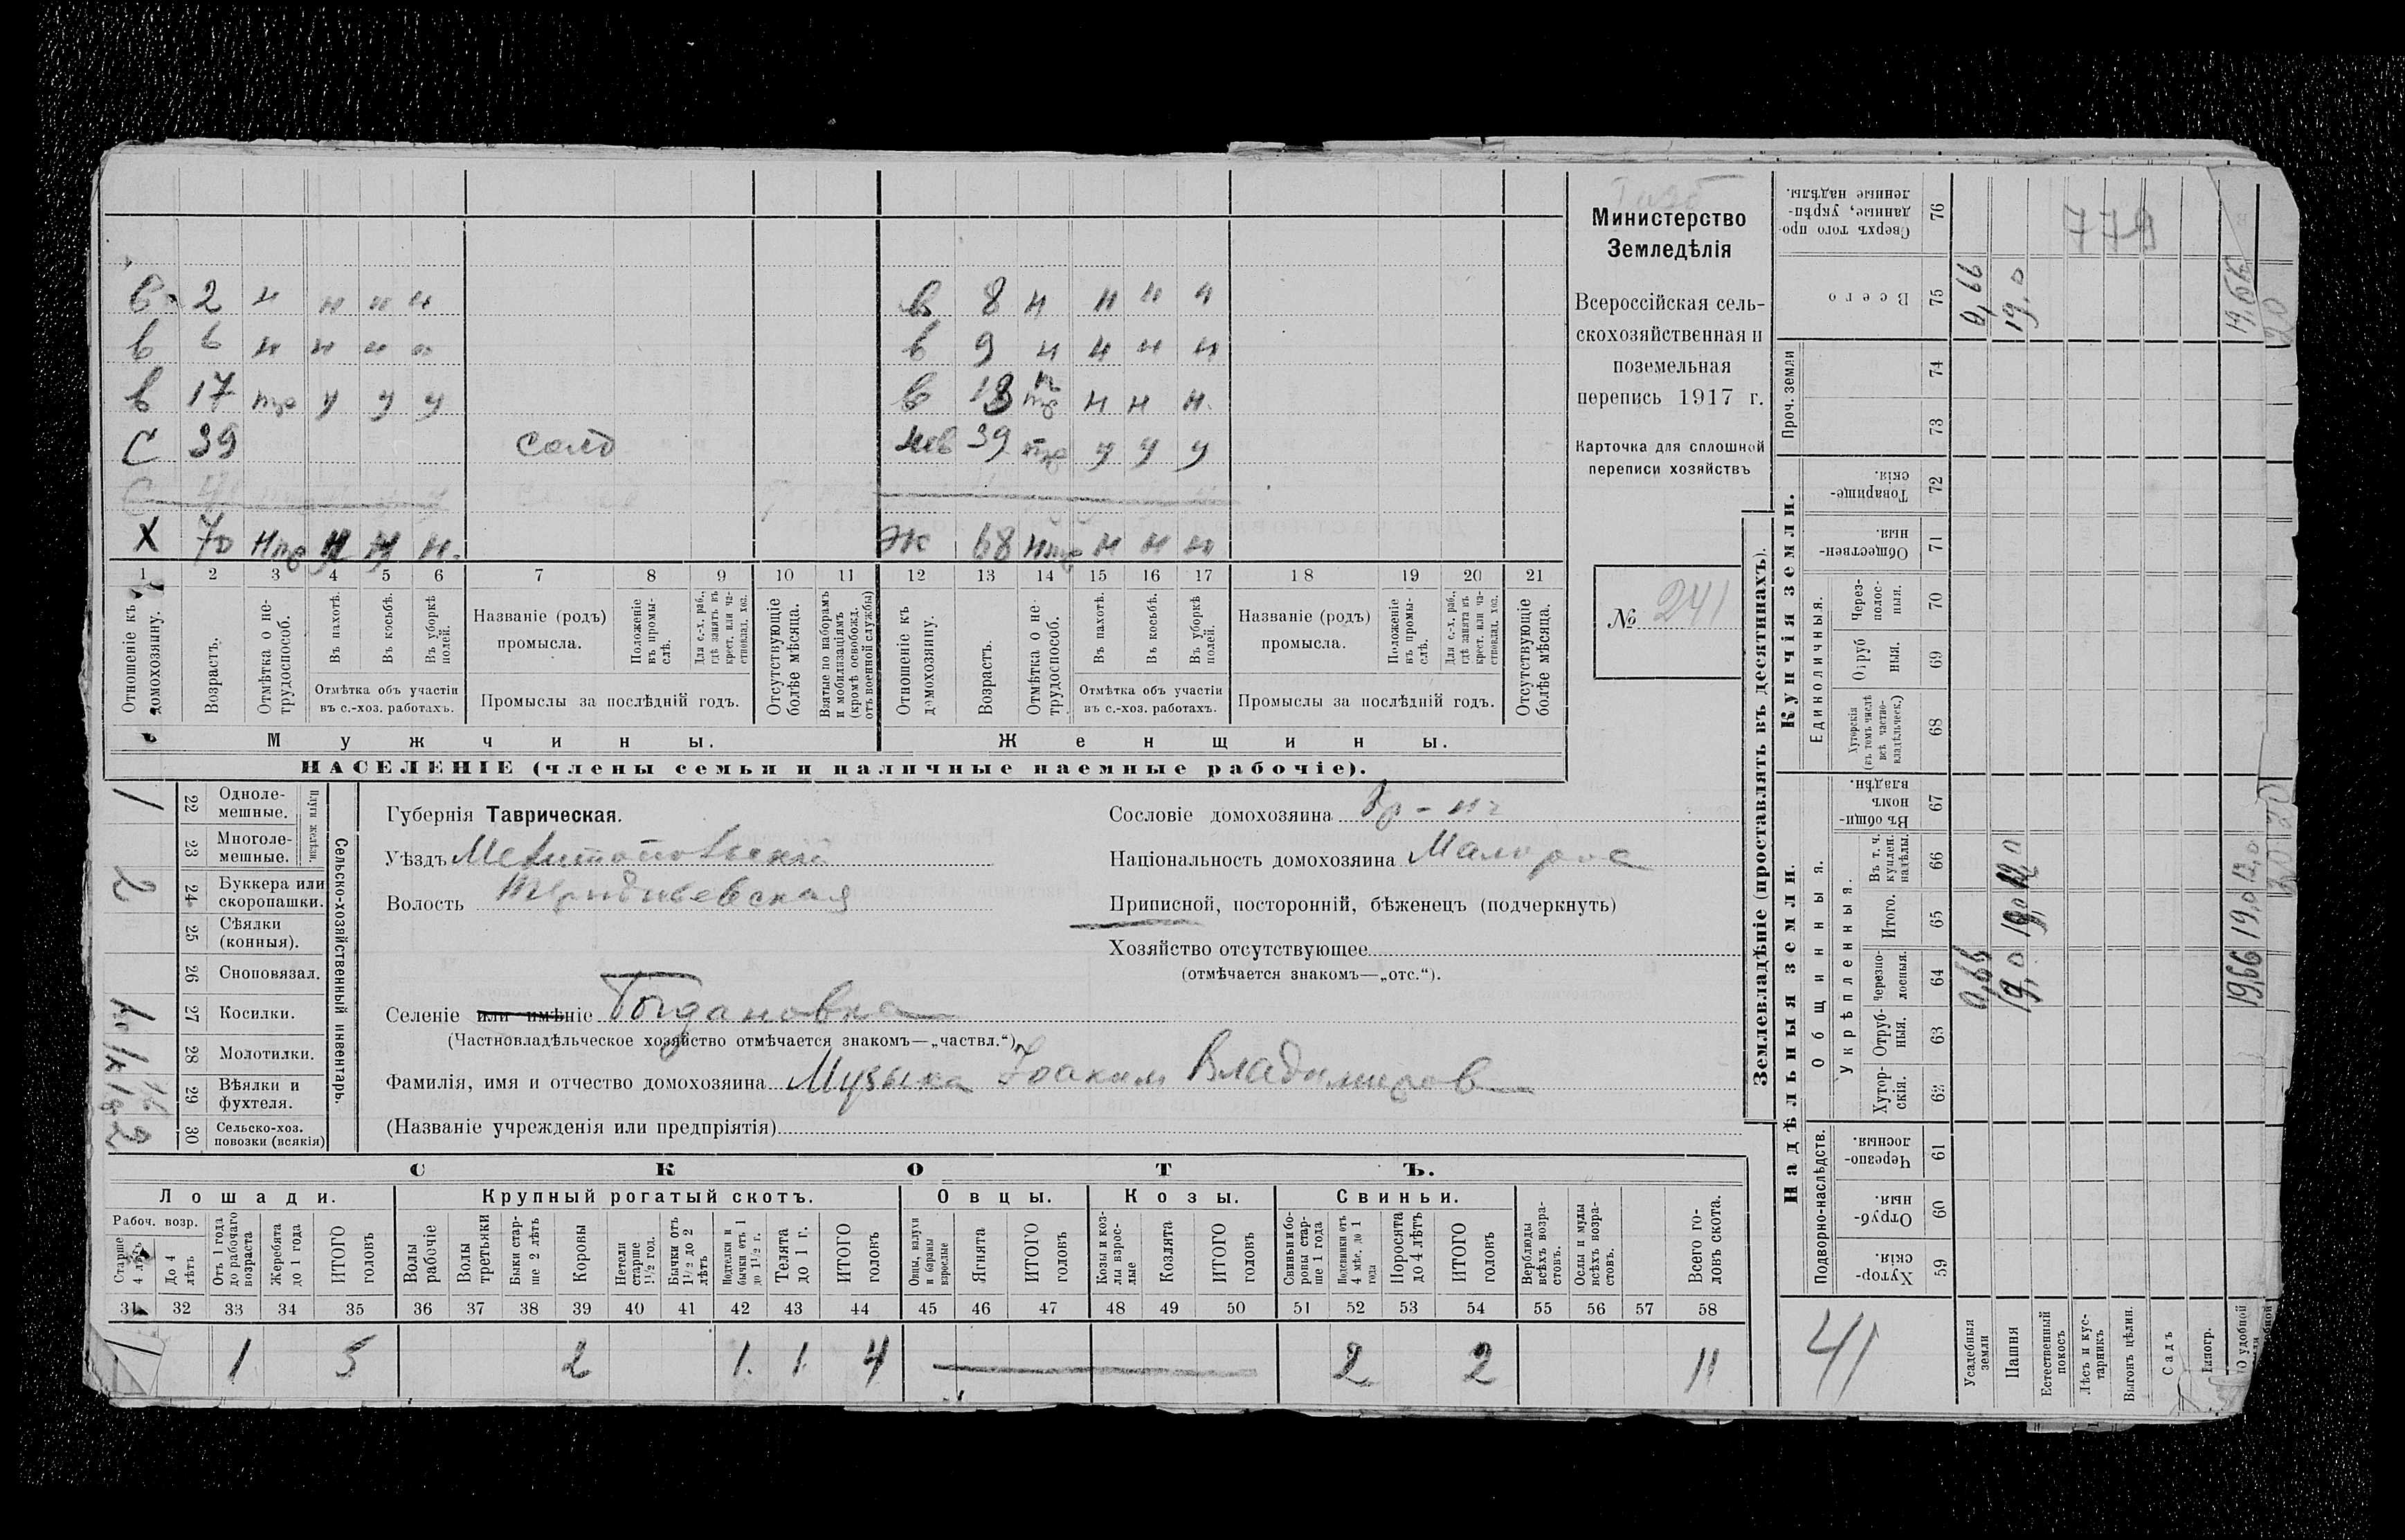 в 2 н н н н в 8 н н н н
в 6 н н н н в 9 н н н н
в 17 тр у у у в 13 н н н
С 39 солд нев 39 тр у у у
Х 70 нтр н н н Ж 68 нтр н н н
1 2 3 4 5 6 7 8 9 10 11 12 13 14 15 16 17 18 19 20 21
Отношеніе къ домохозяину.
Возрастъ.
Отмѣтка о нетрудоспособ.
Въ пахотѣ.
Въ косьбѣ.
Въ уборкѣ полей.
Отмѣтка объ участіи въ с.-хоз. работахъ.
Названіе (родъ) промысла.
Положеніе въ промыслѣ.
Для с.-х. раб., гдѣ занятъ въ крест. или частновлад. хоз.
Промыслы за послѣдній годъ.
Отсутствующіе болѣе мѣсяца.
Взятые по наборамъ и мобилизаціямъ (кромѣ освобожд. отъ военной службы)
Отношеніе къ домохозяину.
Возрастъ.
Отмѣтка о нетрудоспособ.
Въ пахотѣ.
Въ косьбѣ.
Въ уборкѣ полей.
Отмѣтка объ участіи въ с.-хоз. работахъ.
Названіе (родъ) промысла.
Положеніе въ промыслѣ.
Для с.-х. раб., гдѣ занята въ крест. или частновлад. хоз.
Промыслы за послѣдній годъ.
Отсутствующіе болѣе мѣсяца.
Мужчины. Женщины.
НАСЕЛЕНІЕ (члены семьи и наличные наемные рабочіе).
Министерство
Земледѣлія
Всероссійская сель-
скохозяйственная и
поземельная
перепись 1917 г.
Карточка для сплошной
переписи хозяйствъ
№ 241
Сельско-хозяйственный инвентарь.
Плуги желѣзн.
1 22 Одноле-
мешные.
23 Многоле-
мешные.
2 24 Буккера или
скоропашки.
25 Сѣялки
(конныя).
26 Сноповязал.
27 Косилки.
28 Молотилки.
29 Вѣялки и
фухтеля.
30 Сельско-хоз.
повозки (всякія)
Губернія Таврическая.
Уѣздъ Мелитопольскій
Волость
Сословіе домохозяина
Національность домохозяина Малорос
Приписной, посторонній, бѣженецъ (подчеркнуть)
Хозяйство отсутствующее
(отмѣчается знакомъ—„отс.“).
Селеніе или имѣніе Богдановка
(Частновладѣльческое хозяйство отмѣчается знакомъ—„частвл.“)
Фамилія, имя и отчество домохозяина Музыка Іоаким Владимиров
(Названіе учрежденія или предпріятія)
СКОТЪ.
Лошади. Крупный рогатый скотъ. Овцы. Козы. Свиньи.
Рабоч. возр.
Старше 4 лѣтъ
До 4 лѣтъ
Отъ 1 года до рабочаго возраста
Жеребята до 1 года
ИТОГО головъ
Волы рабочіе
Волы третьяки
Быки старше 2 лѣтъ
Коровы
Нетели старше 1½ год.
Бычки отъ 1½ до 2 лѣтъ
Подтелки и бычки отъ 1 до 1½ г.
Телята до 1 г.
ИТОГО головъ
Овцы, валухи и бараны взрослые
Ягнята
ИТОГО головъ
Козы и козлы взрослые
Козлята
ИТОГО головъ
Свиньи боровы старше 1 года
Подсвинки отъ 4 мѣс. до 1 года
Поросята до 4 лѣтъ
ИТОГО головъ
Верблюды всѣхъ возрастовъ.
Ослы и мулы всѣхъ возрастовъ.
Всего головъ скота.
31 32 33 34 35 36 37 38 39 40 41 42 43 44 45 46 47 48 49 50 51 52 53 54 55 56 57 58
1 5 2 1 1 4 2 2 11
Землевладѣніе (проставлять въ десятинахъ).
Надѣльныя земли. Купчія земли. Проч. земли
Подворно-наслѣдств. Общинныя. Единоличныя.
Укрѣпленныя.
59 Хуторскія.
60 Отрубныя.
61 Черезполосныя.
62 Хуторскія.
63 Отрубныя.
64 Черезполосныя.
65 Итого.
66 Въ т. ч. куплен. надѣлы.
67 Въ общинномъ владѣн.
68 Хуторскія (въ томъ числѣ всѣ частновладѣльческ.)
69 Отрубныя.
70 Черезполосныя.
71 Общественныя.
72 Товарищескія.
73
74
75 Всего
76 Сверхъ того проданные, укрѣпленные надѣлы.
779
41
Усадебныя земли 0,66 0,66
Пашня 19,0 19,0 12,0 19,0
Естественный покосъ
Лѣсъ и кустарникъ
Выгонъ цѣлин.
Садъ
Виногр.
удобной 19,66 19,0 12,0 19,66
20 20